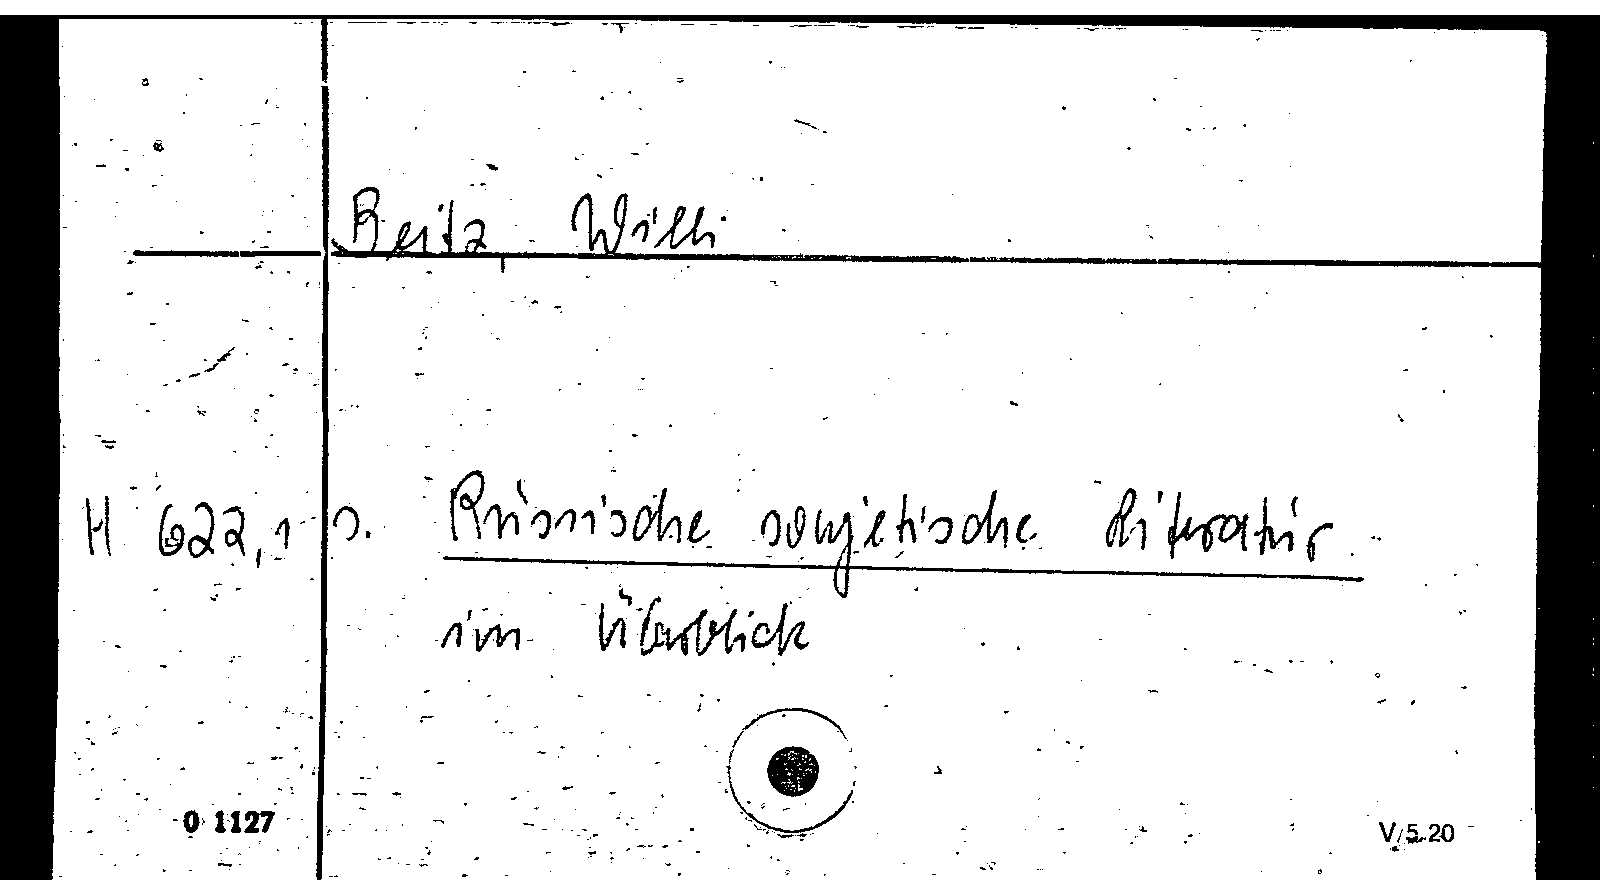 Beitz, Willi
H 622,1 s. Russische sowjetische Literatur
im Überblick
O 1127
V/5.20